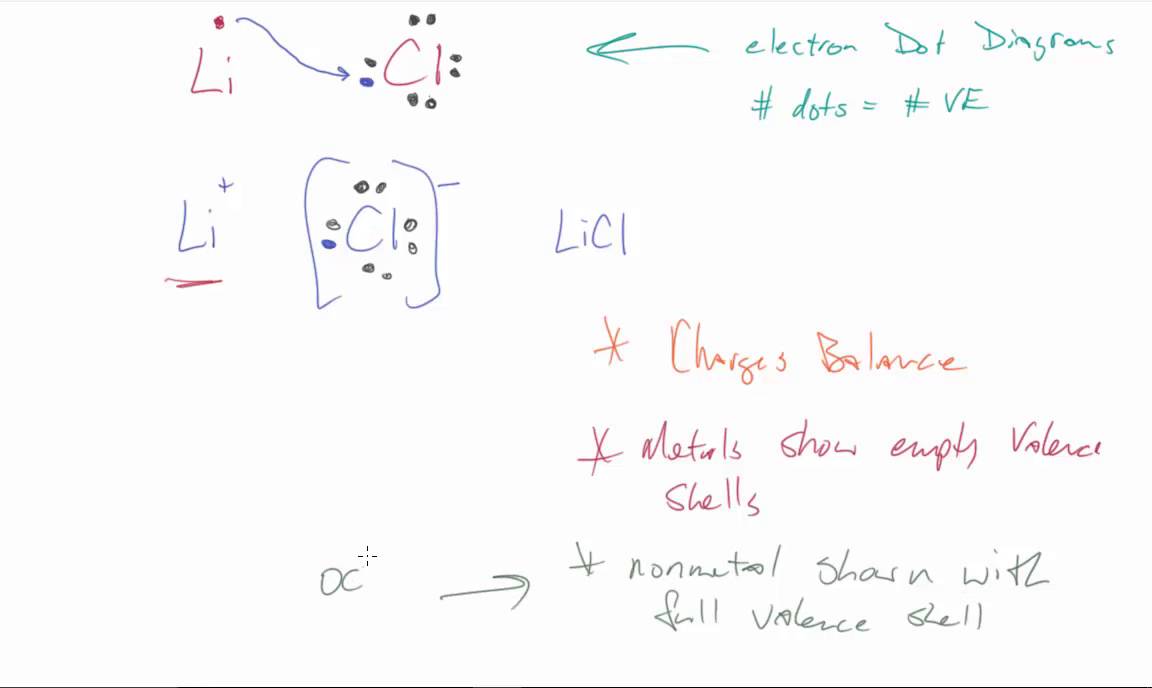 Li Cl
electron Dot Diagrams
# dots = # VE
Li+ [Cl]− LiCl
* Charges Balance
* Metals show empty Valence
shells
OC → * nonmetal shown with
full valence shell